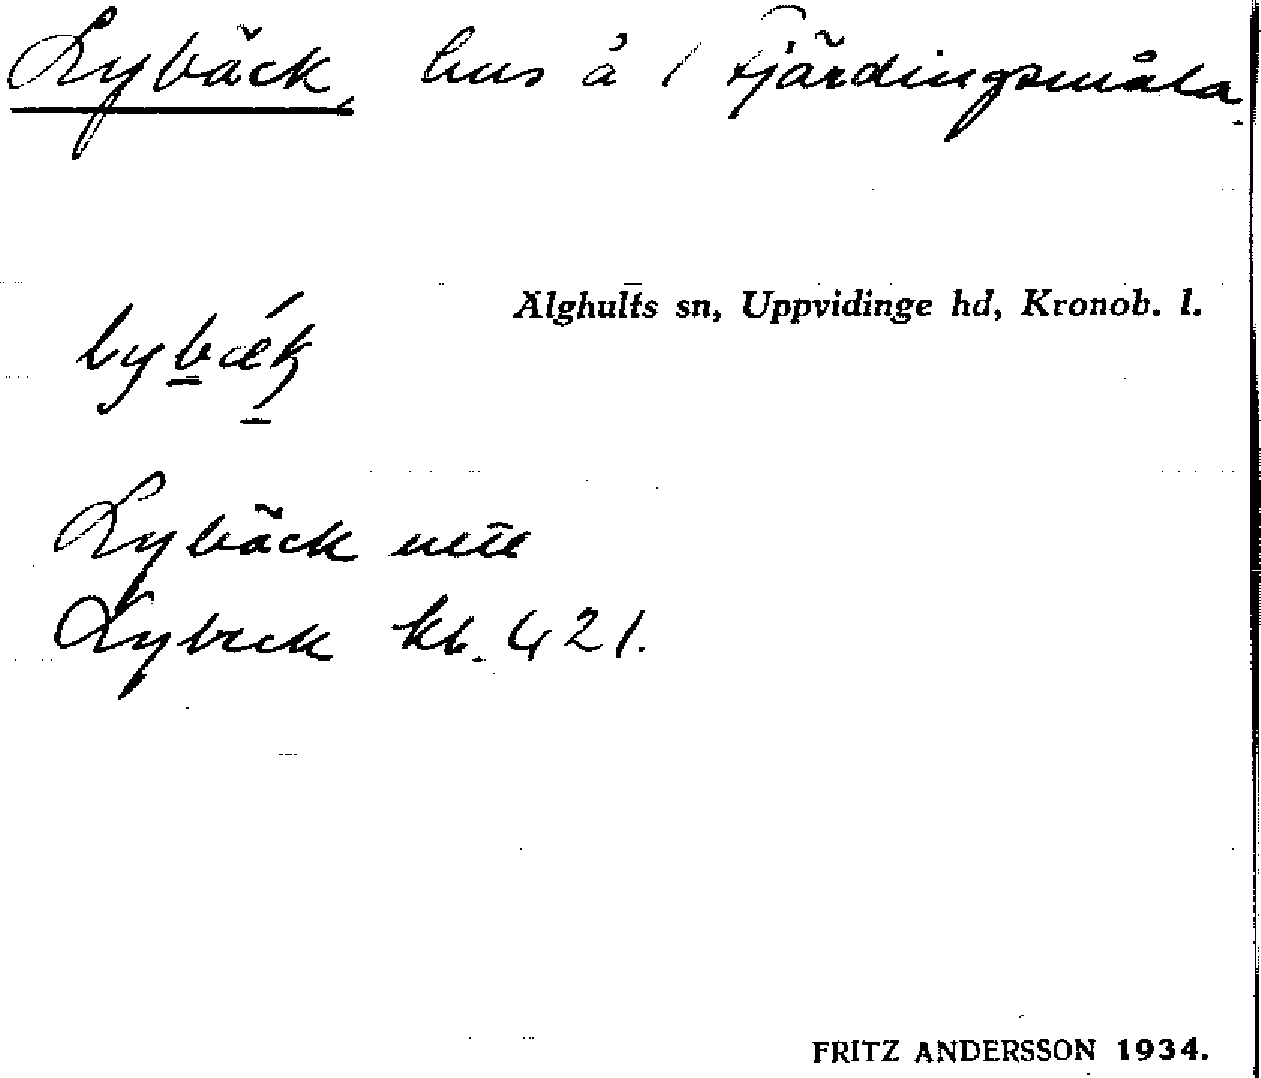 Lybäck, hus å 1 Fjärdingsmåla.
Älghults sn, Uppvidinge hd, Kronob. l.
lybæk
Lybäck
Lybeck kb. 421.
FRITZ ANDERSSON 1934.